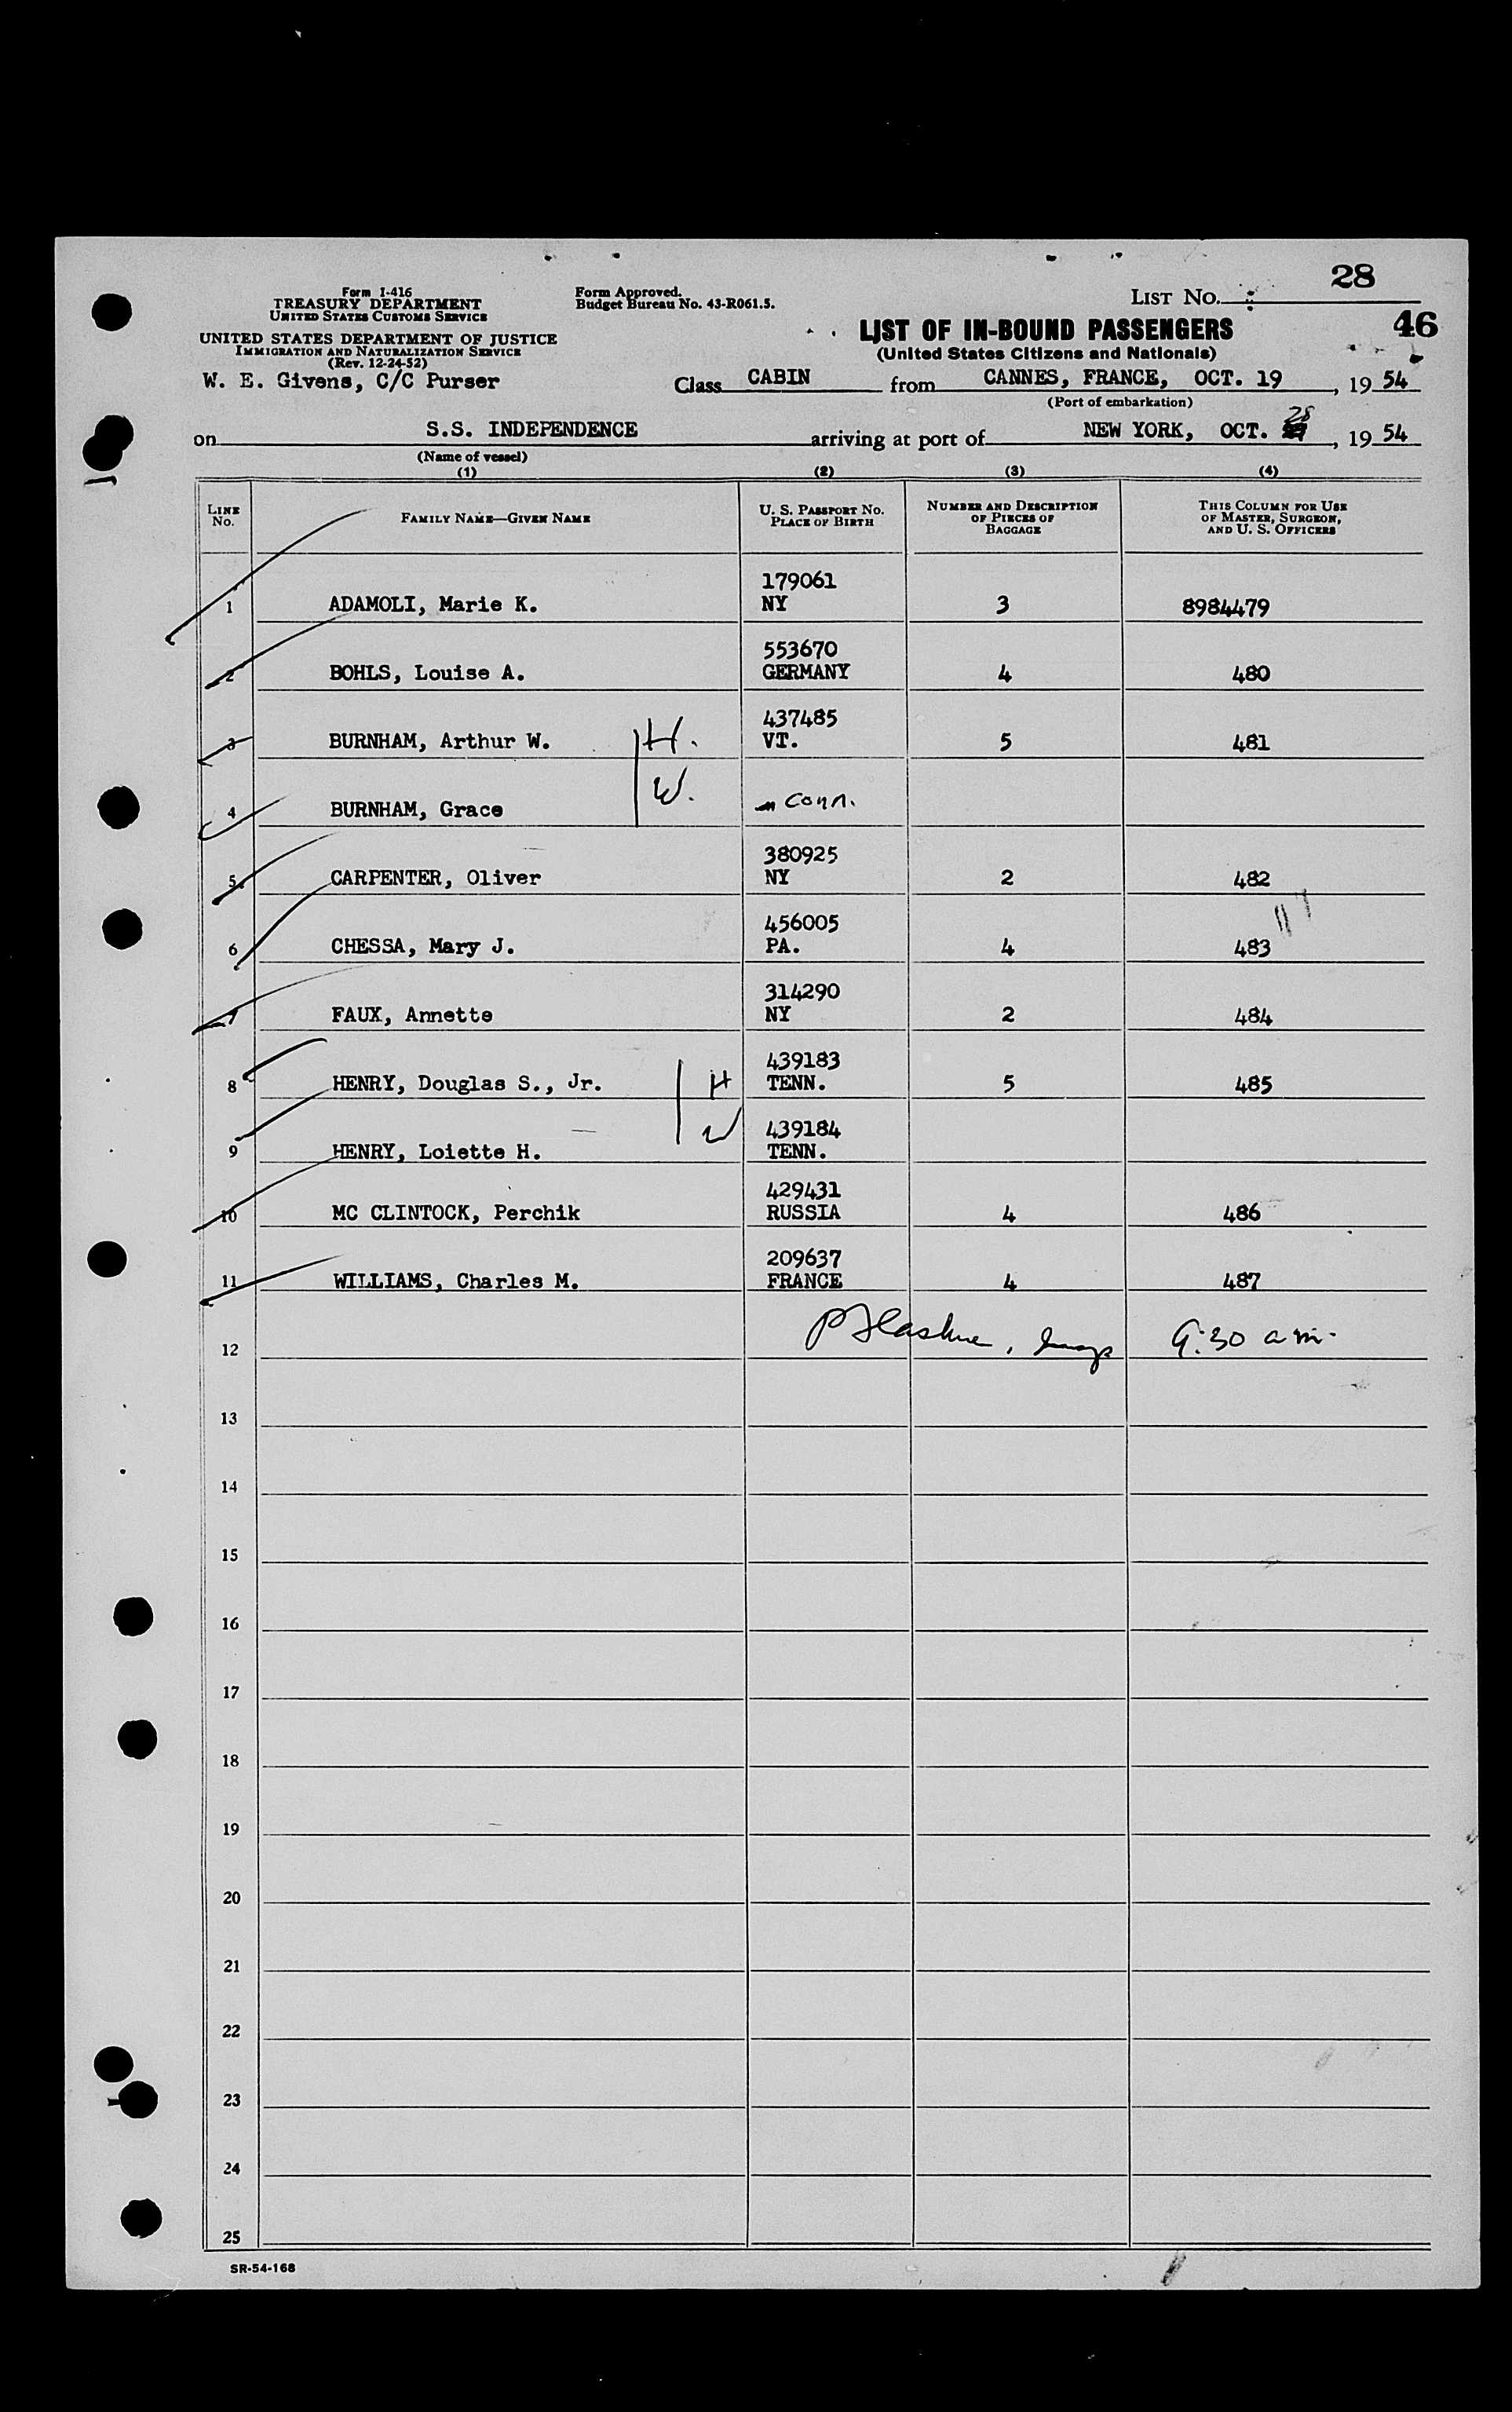 28
Form I-416
TREASURY DEPARTMENT
UNITED STATES CUSTOMS SERVICE
Form Approved.
Budget Bureau No. 43-R061.5.
LIST No.
46
UNITED STATES DEPARTMENT OF JUSTICE
IMMIGRATION AND NATURALIZATION SERVICE
(Rev. 12-24-52)
LIST OF IN-BOUND PASSENGERS
(United States Citizens and Nationals)
W. E. Givens, C/C Purser
Class CABIN from CANNES, FRANCE, OCT. 19, 19 54
(Port of embarkation)
28
on S.S. INDEPENDENCE arriving at port of NEW YORK, OCT. 19 54
(Name of vessel)
(1) (2) (3) (4)
LINE No. FAMILY NAME—GIVEN NAME U. S. PASSPORT No. PLACE OF BIRTH NUMBER AND DESCRIPTION OF PIECES OF BAGGAGE THIS COLUMN FOR USE OF MASTER, SURGEON, AND U. S. OFFICERS
179061
1 ADAMOLI, Marie K. NY 3 8984479
553670
2 BOHLS, Louise A. GERMANY 4 480
437485
3 BURNHAM, Arthur W. H. VT. 5 481
4 BURNHAM, Grace W. Conn.
380925
5 CARPENTER, Oliver NY 2 482
456005
6 CHESSA, Mary J. PA. 4 483
314290
7 FAUX, Annette NY 2 484
439183
8 HENRY, Douglas S., Jr. H TENN. 5 485
439184
9 HENRY, Loiette H. W TENN.
429431
10 MC CLINTOCK, Perchik RUSSIA 4 486
209637
11 WILLIAMS, Charles M. FRANCE 4 487
12 9:30 a.m.
13
14
15
16
17
18
19
20
21
22
23
24
25
SR-54-168